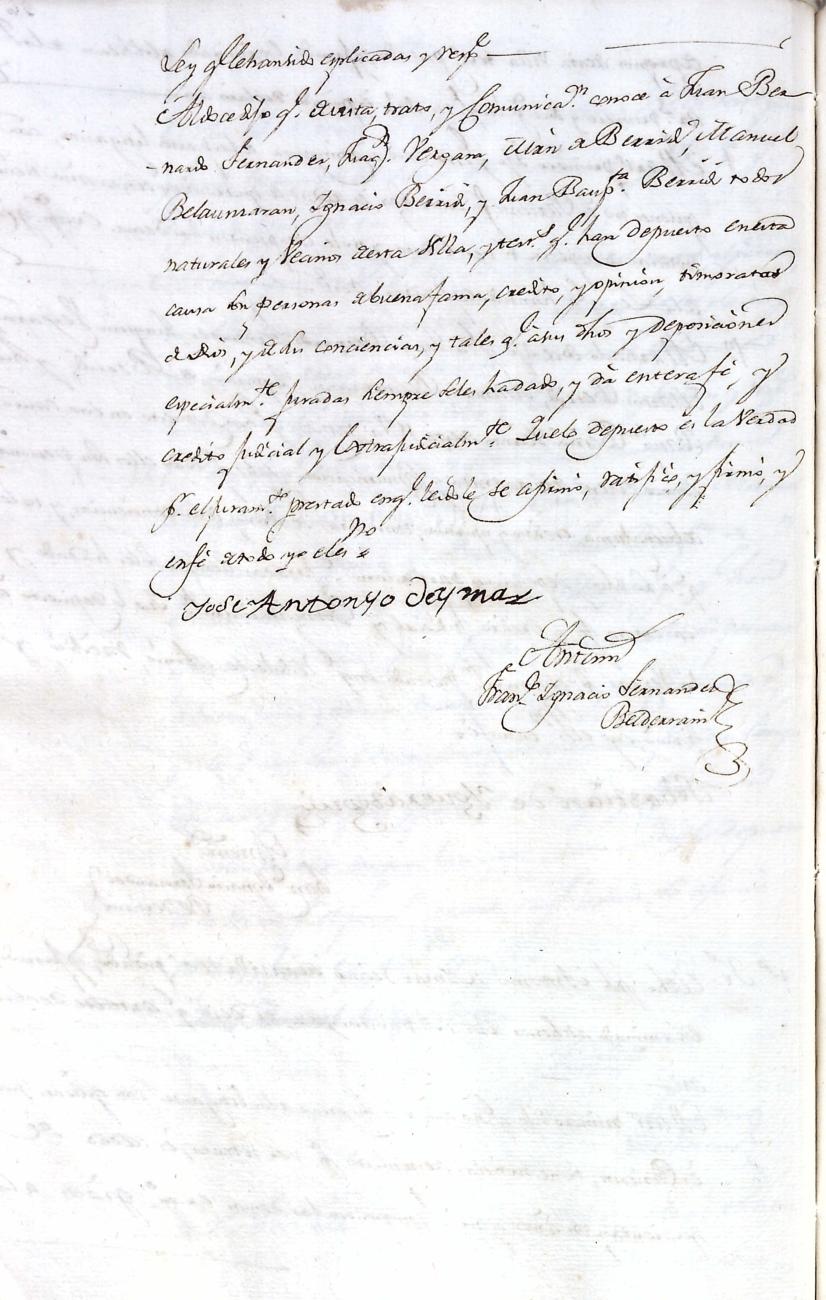 Ley q.e le han sido esplicadas y resp.e
Al doce dijo q.e de vista, trato, y Comunica.n conoce à Juan Ber
nardo Fernandez, Joaq.n Vergara, Mrn de Berridi, Manuel
Belaunzaran, Ignacio Berridi, y Juan Baup.ta Berridi todos
naturales y Vecinos de esta Villa, y test.s q.e han depuesto en esta
causa son personas de buena fama, credito, y opinion, timoratas
de Dios, y de sus conciencias, y tales q.e à sus dhos y deposiciones
especialm.te juradas siempre se les ha dado, y dà entera fé, y
credito judicial y extrajudicialm.te Que lo depuesto es la Verdad
p.r el juram.to prestado en q.e leidole se afirmó, ratificó, y firmó, y
en fé de todo yo el es.no
Jose Antonyo de ymaz
Ante mi
Fran.co Ignacio Fernandez
Belderrain